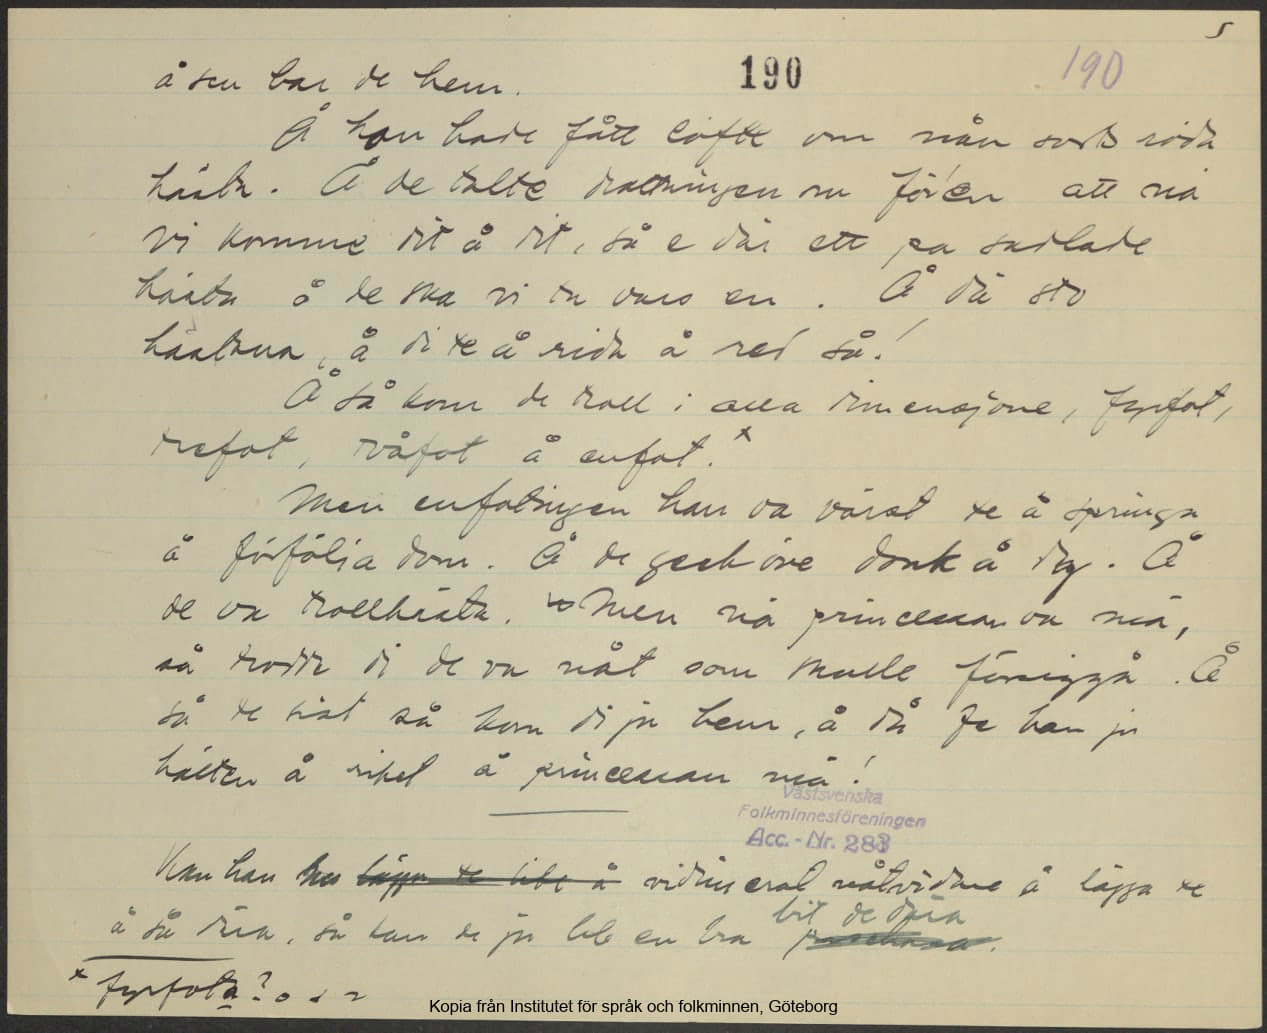 5
190
190
å sen bar de hem.
Å han hade fått löfte om nån sorts röda
hästa. Å de talte drottningen om för'en att nä
vi komme dit å dit, så e där ett pa sadlade
hästa å de ska vi ta vars en. Å dä sto
hästana, å di te å rida å red så!
Å så kom de troll i alla dimensjone, fyrfot,
trefot, tvåfot å enfot.x
Men enfotingen han va värst te å springa
å förfölja dom. Å de geck öve donk å dy. Å
de va trollhästa. Men nä princessan va mä,
så trodde di de va nåt som skulle försiggå. Å
så te sist så kom di ju hem, å då fe han ju
hälten å riket å princessan mä!
Västsvenska
Folkminnesföreningen
Acc.-Nr. 283
Kan han lägga te lite å nåt vidare å lägga te
å så dra, så kan de ju bli en bra bit de dära
x fyrfota?
Kopia från Institutet för språk och folkminnen, Göteborg